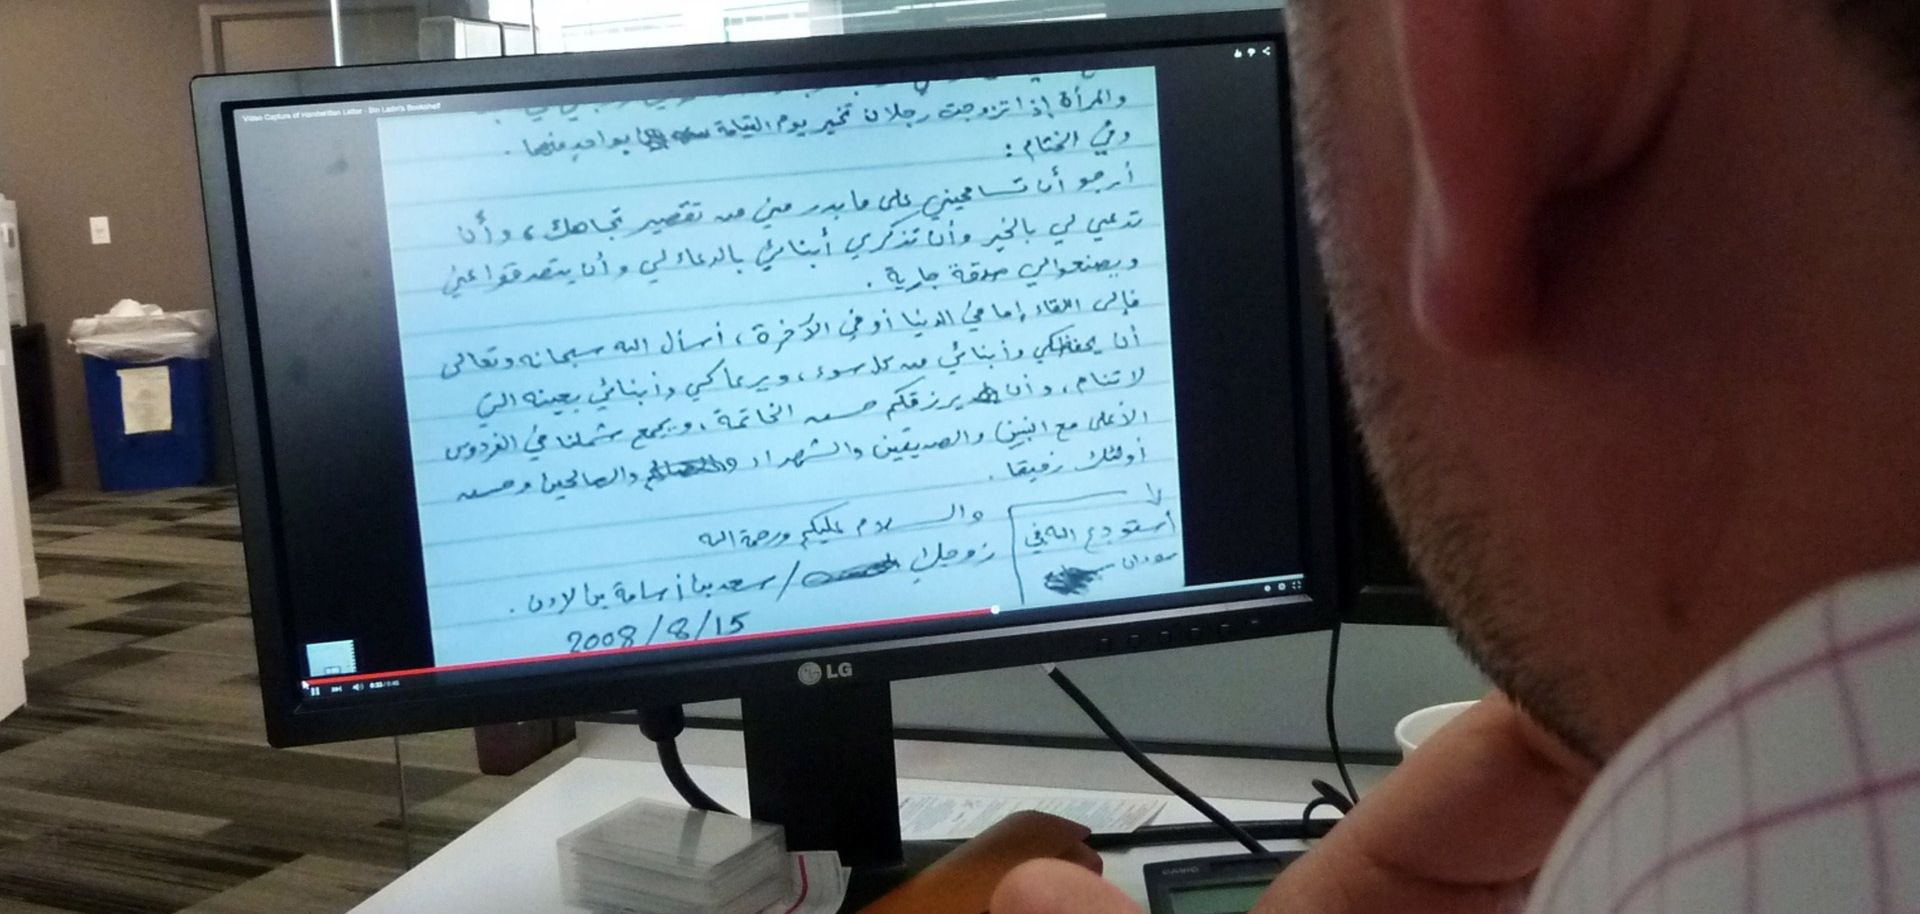 Video Capture of Handwritten Letter - Bin Ladin's Bookshelf
والمرأة إذا تزوجت رجلان تخير يوم القيامة بواحد منهما .
وفي الختام :
أرجو أن تسامحيني على ما بدر مني من تقصير تجاهك ، وأن
تدعي لي بالخير وأن تذكري أبنائي بالدعاء لي وأن يتصدقوا عني
ويصنعوا لي صدقة جارية .
فإلى اللقاء إما في الدنيا أو في الآخرة ، أسأل الله سبحانه وتعالى
أن يحفظكي وأبنائي من كل سوء ، ويرعاكي وأبنائي بعينه التي
لا تنام ، وأن يرزقكم حسن الخاتمة ، ويجمع شملنا في الفردوس
الأعلى مع النبيين والصديقين والشهداء والصالحين وحسن
أولئك رفيقا .
والسلام عليكم ورحمة الله
أستودع الله في
زوجك / سعد بن أسامة بن لادن .
2008/8/15
LG
CASIO